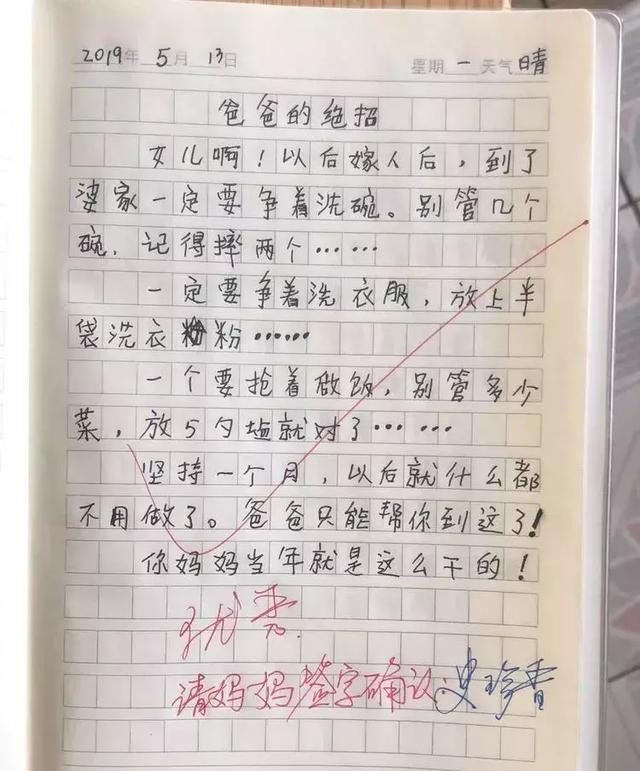 2019年 5月 13日 星期一 天气晴
爸爸的绝招
女儿啊！以后嫁人后，到了
婆家一定要争着洗碗。别管几个
碗，记得摔两个……
一定要争着洗衣服，放上半
袋洗衣粉……
一个要抢着做饭，别管多少
菜，放5勺盐就对了……
坚持一个月，以后就什么都
不用做了。爸爸只能帮你到这了！
你妈妈当年就是这么干的！
优秀.
请妈妈签字确认 史珍香